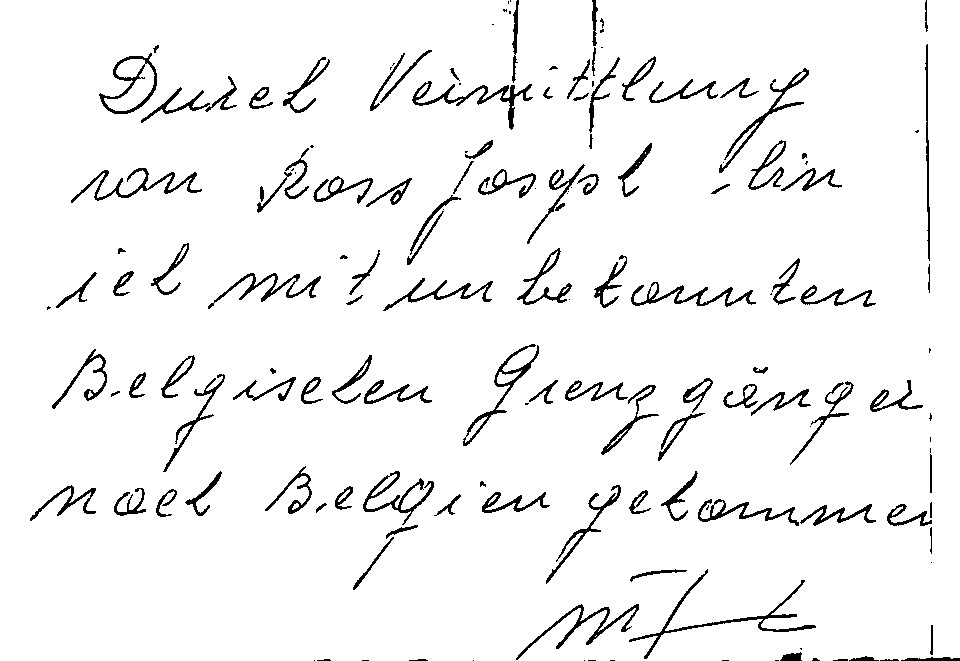 Durch Vermittlung
von Ross Joseph bin
ich mit unbekannten
Belgischen Grenzgänger
nach Belgien gekommen